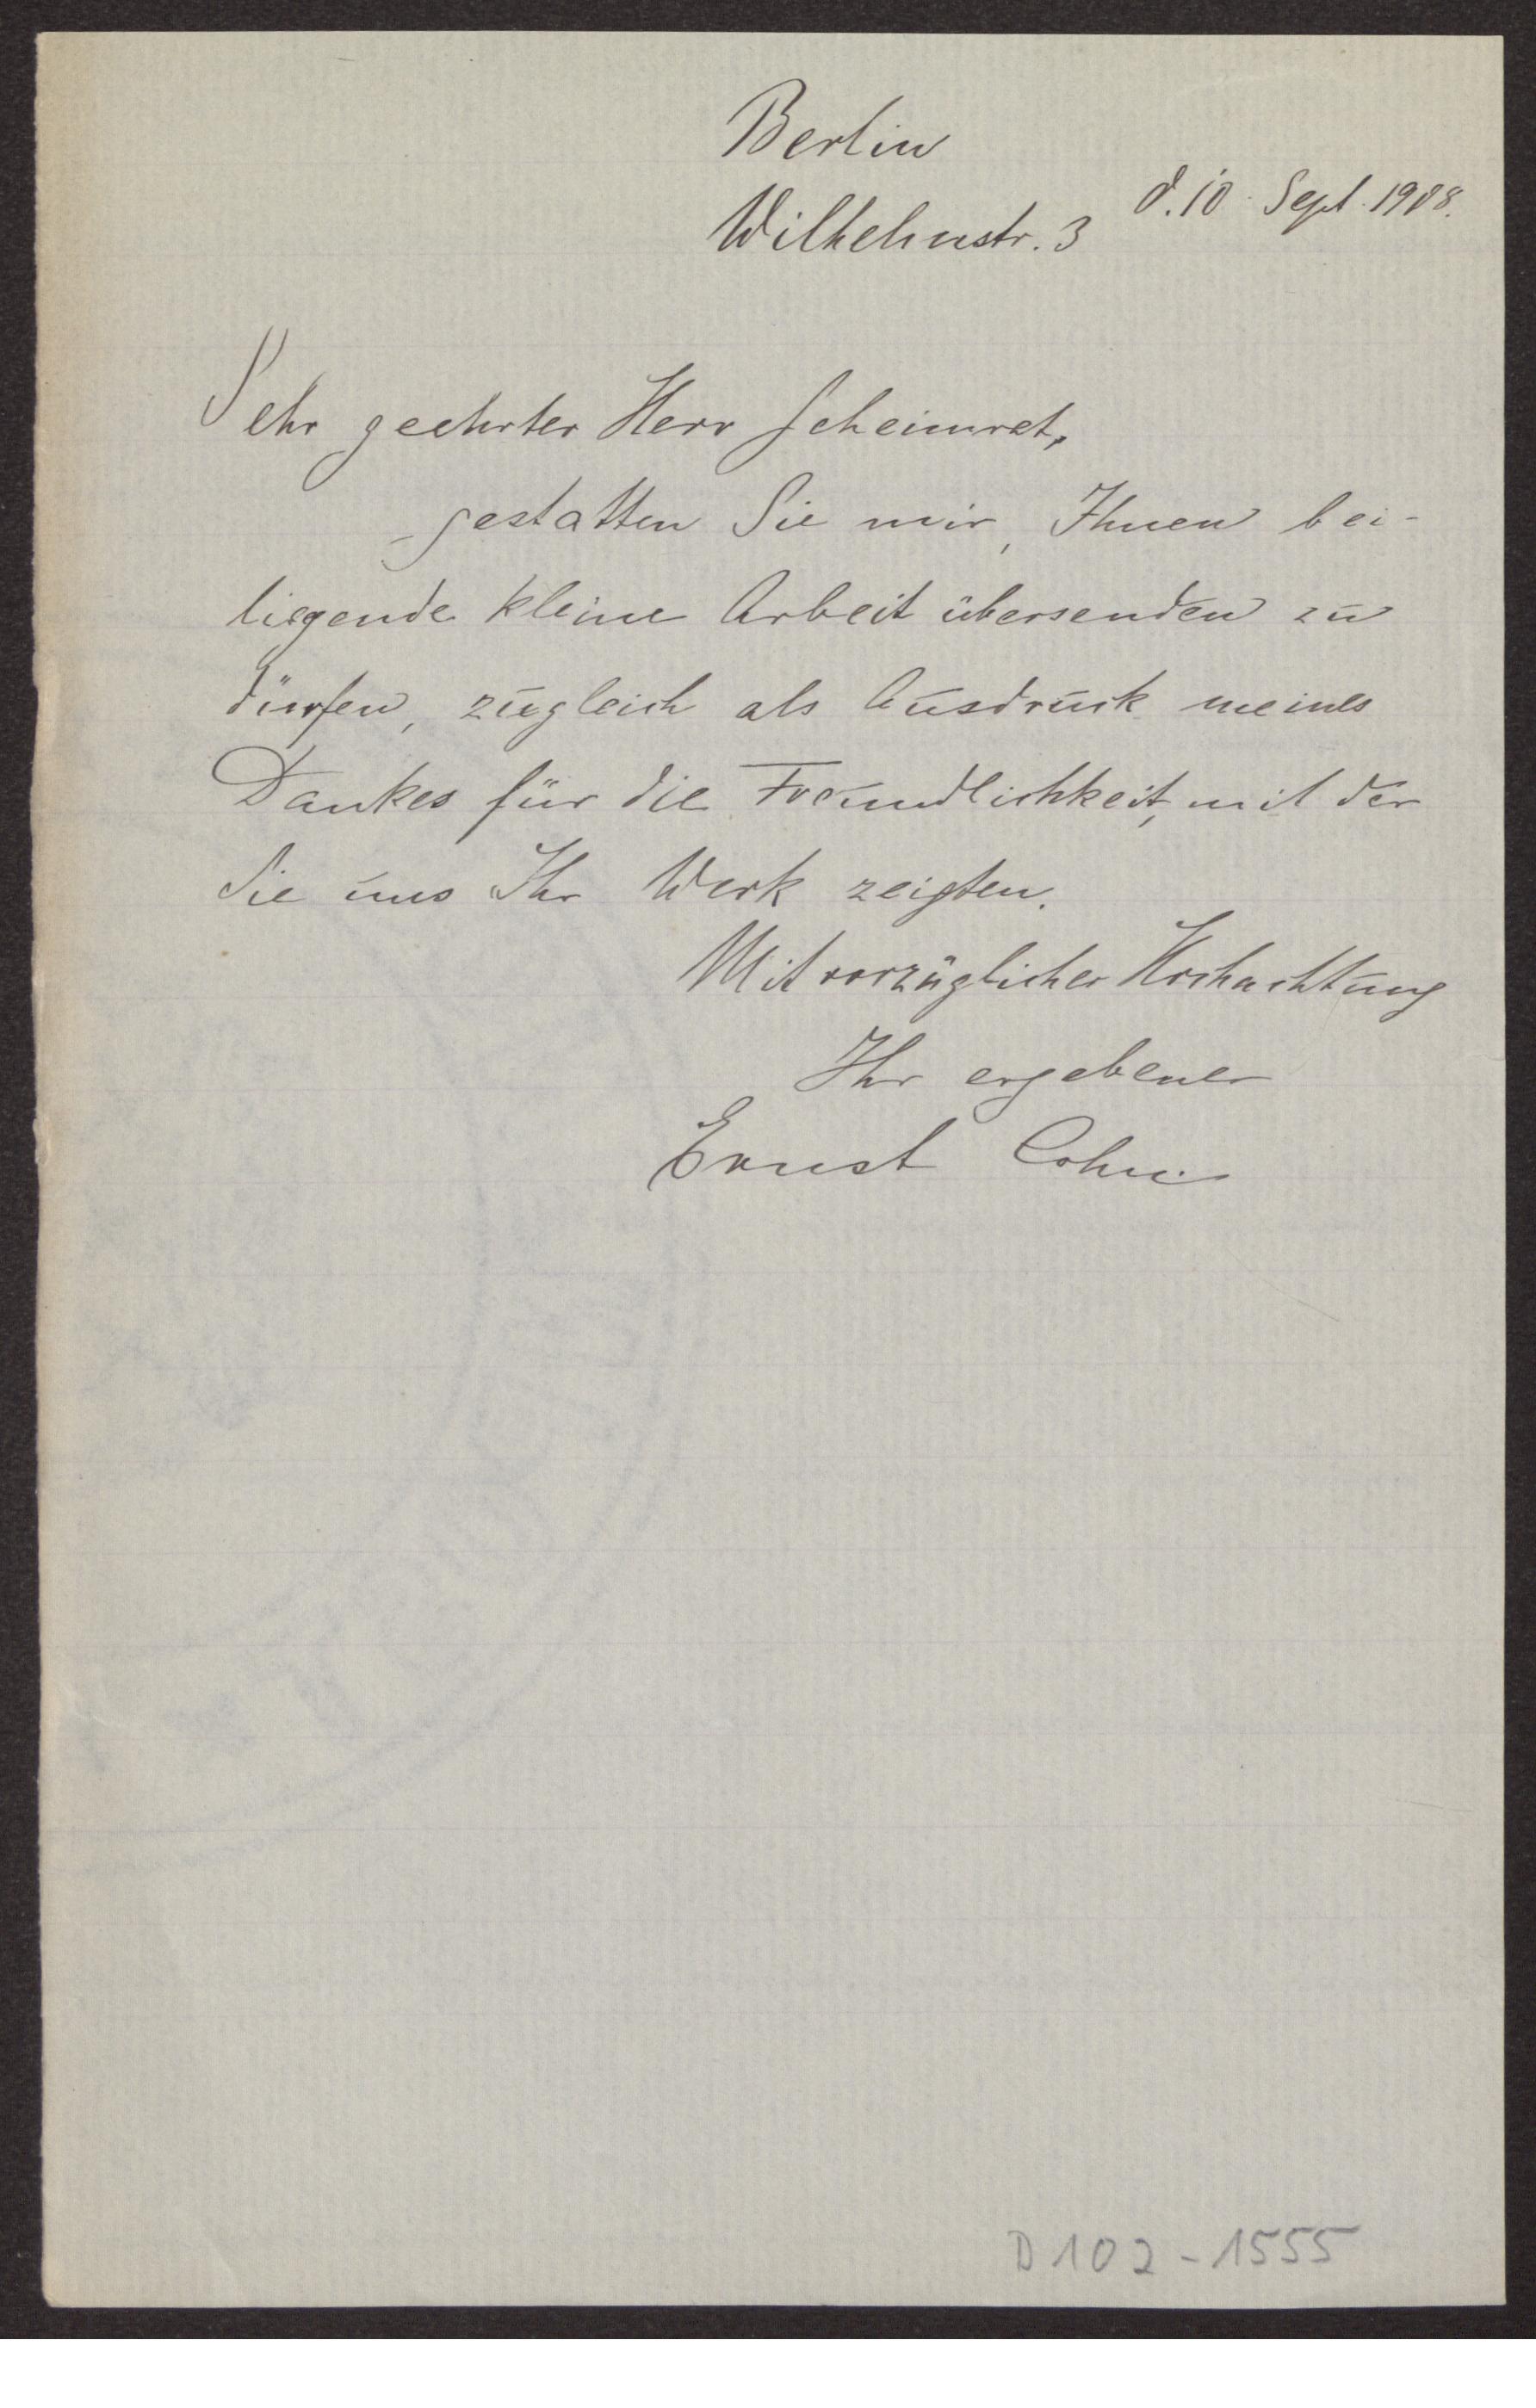 Berlin
Wilhelmstr. 3 d. 10. Sept. 1908.
Sehr geehrter Herr Geheimrat,
gestatten Sie mir, Ihnen bei-
liegende kleine Arbeit übersenden zu
dürfen, zugleich als Ausdruck meines
Dankes für die Freundlichkeit, mit der
Sie uns Ihr Werk zeigten.
Mit vorzüglicher Hochachtung
Ihr ergebener
Ernst Cohn.
D 102-1555